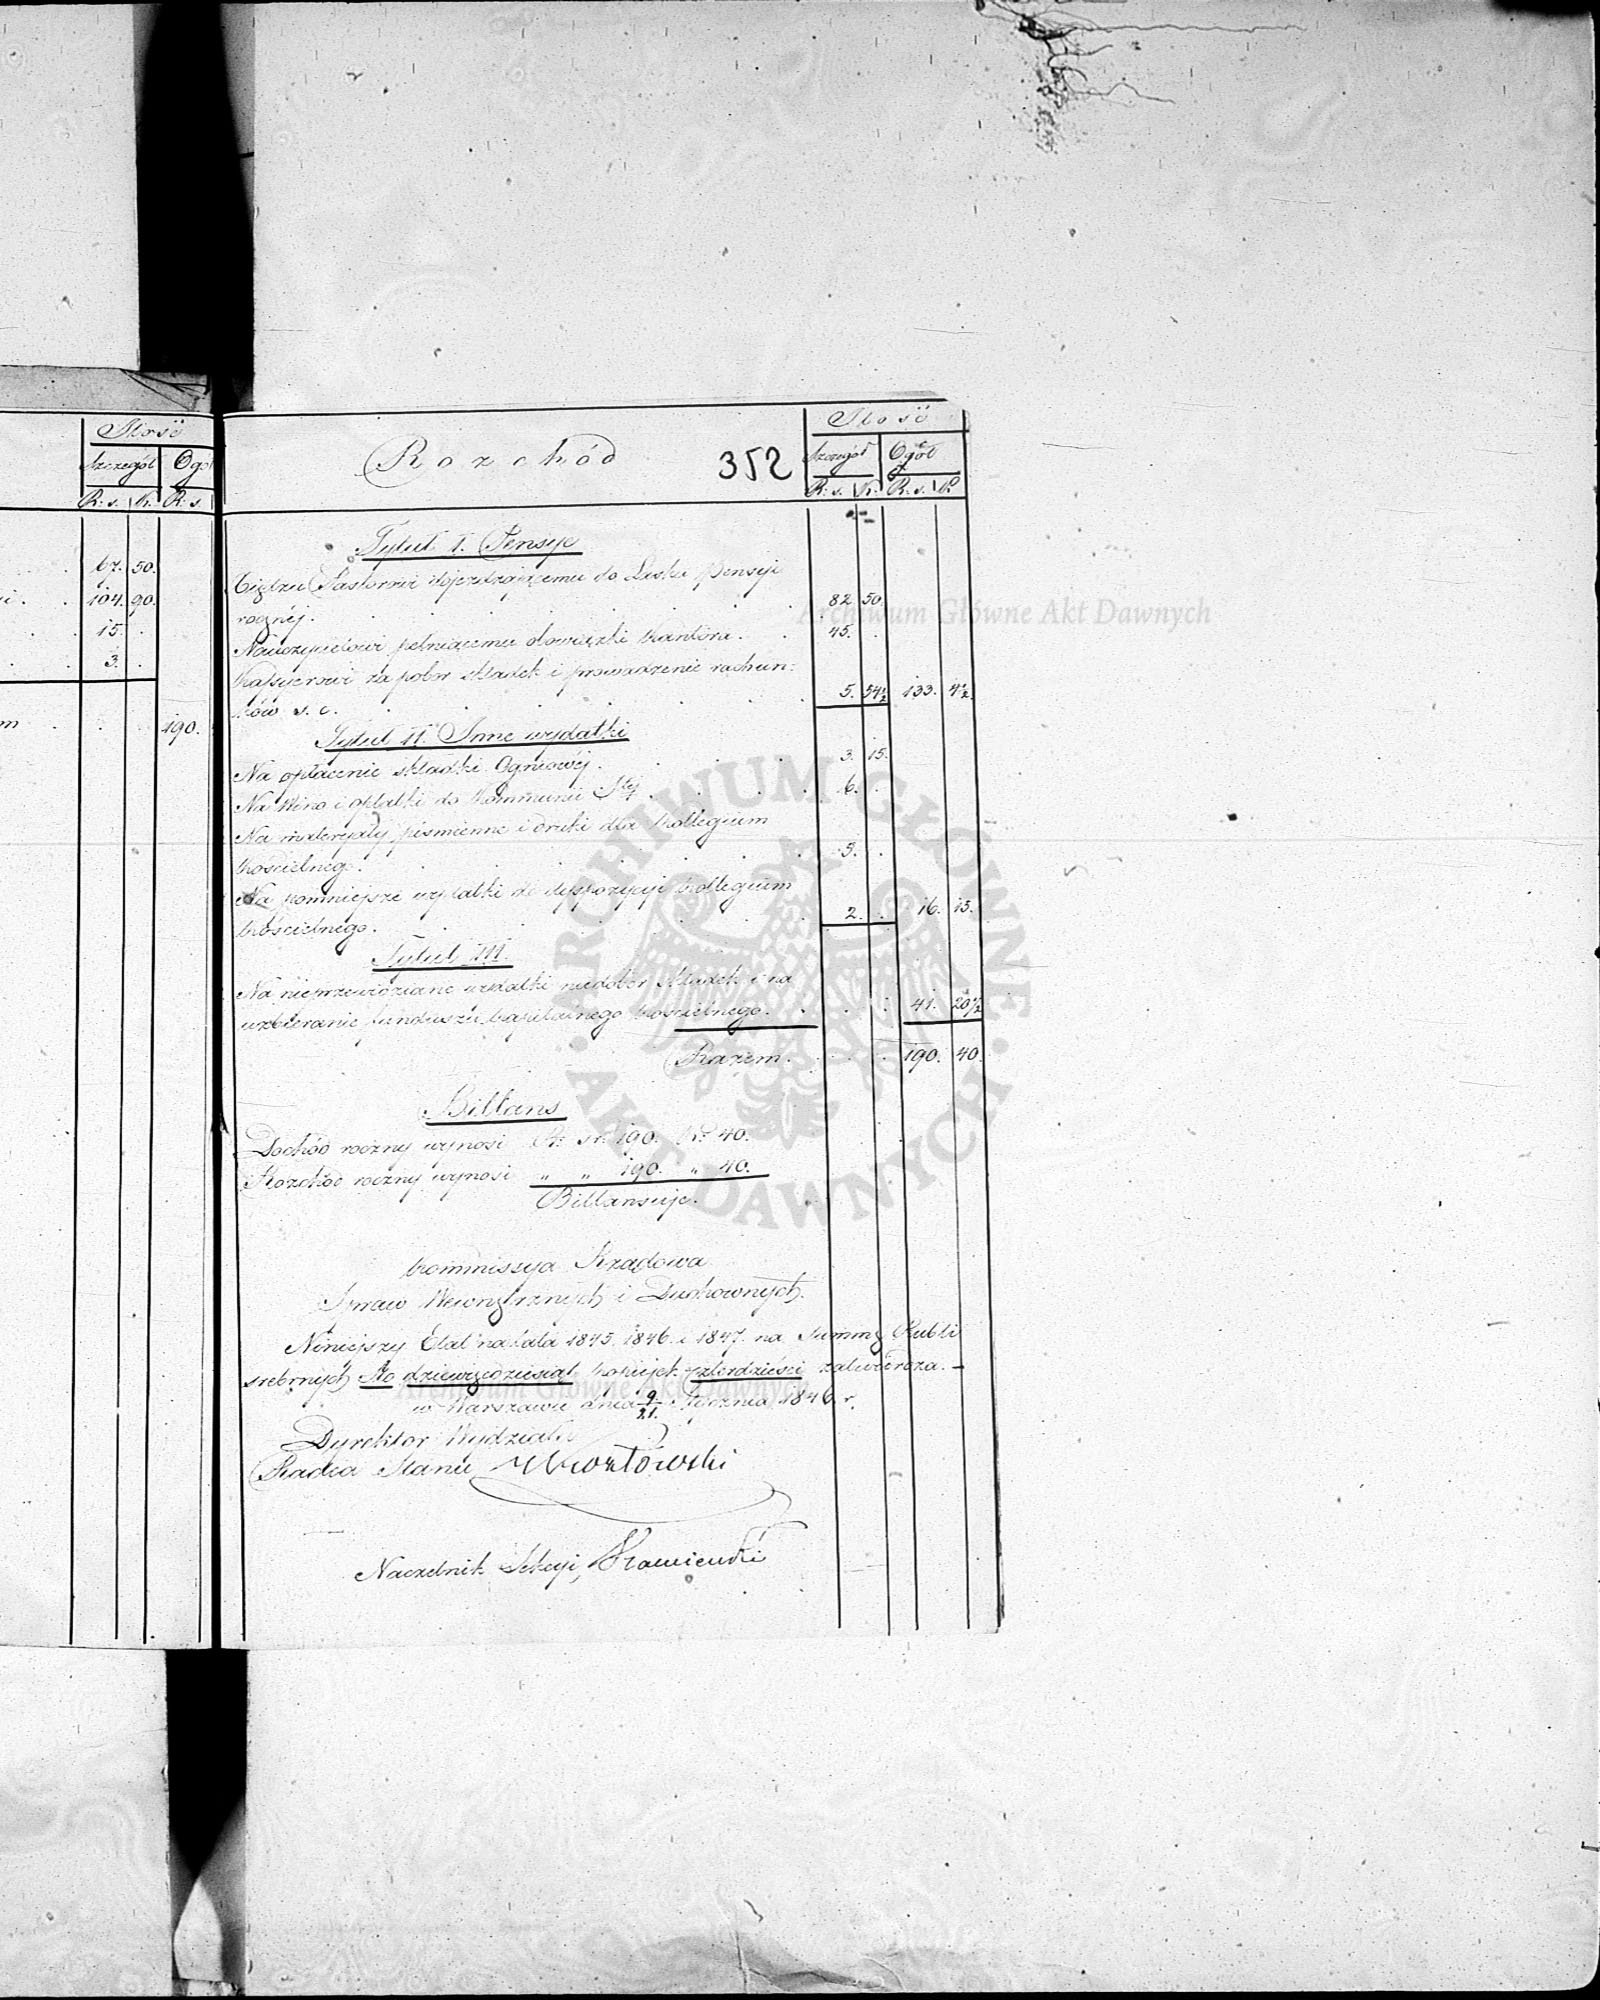 Ilość
Szczegół Ogół
R. s. K. R. s.
67. 50.
104. 90.
15.
3.
190.
Rozchód 352
Ilość
Szczegół Ogół
R. s. K. R. s. K
Tytuł I. Pensye
Xiędzu Pastorowi dojeżdżającemu do Łasku pensyi
rocznej. 82 50.
Nauczycielowi pełniącemu obowiązki Kantora. 45.
Kassyerowi za pobor składek i prowadzenie rachun:
ków s. c. 5. 54½ 133. 4½
Tytuł II. Inne wydatki
Na opłacenie składki Ogniowéj. 3. 15.
Na Wino i opłatki do Kommunii Stéj. 6.
Na materyały piśmienne i druki dla Kollegium
kościelnego. 5.
Na pomniejsze wydatki do dyspozycyi Kollegium
kościelnego. 2. 16. 15.
Tytuł III.
Na nieprzewidziane wydatki niedobór składek i na
uzbieranie funduszu kapitalnego kościelnego. 41. 20½
Razem. 190. 40.
Billans
Dochód roczny wynosi R. sr. 190. K. 40.
Rozchód roczny wynosi „ „ 190. „ 40.
Billansuje.
Kommissya Rządowa
Spraw Wewnętrznych i Duchownych.
Niniejszy Etat na lata 1845. 1846. i 1847. na Summę Rubli
srebrnych Sto dziewięćdziesiąt kopiejek czterdzieści zatwierdza. –
w Warszawie dnia 9/21. Stycznia 1846. r.
Dyrektor Wydziału
Radca Stanu
Naczelnik Sekcyi, Kamieński
Archiwum Główne Akt Dawnych
ARCHIWUM GŁÓWNE • AKT DAWNYCH •
Archiwum Główne Akt Dawnych